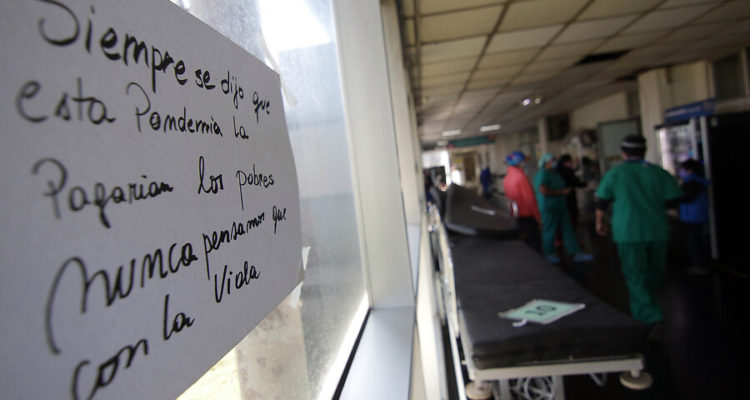 Siempre se dijo que
esta Pandemia la
Pagarian los pobres
nunca pensamos que
con la Vida
10